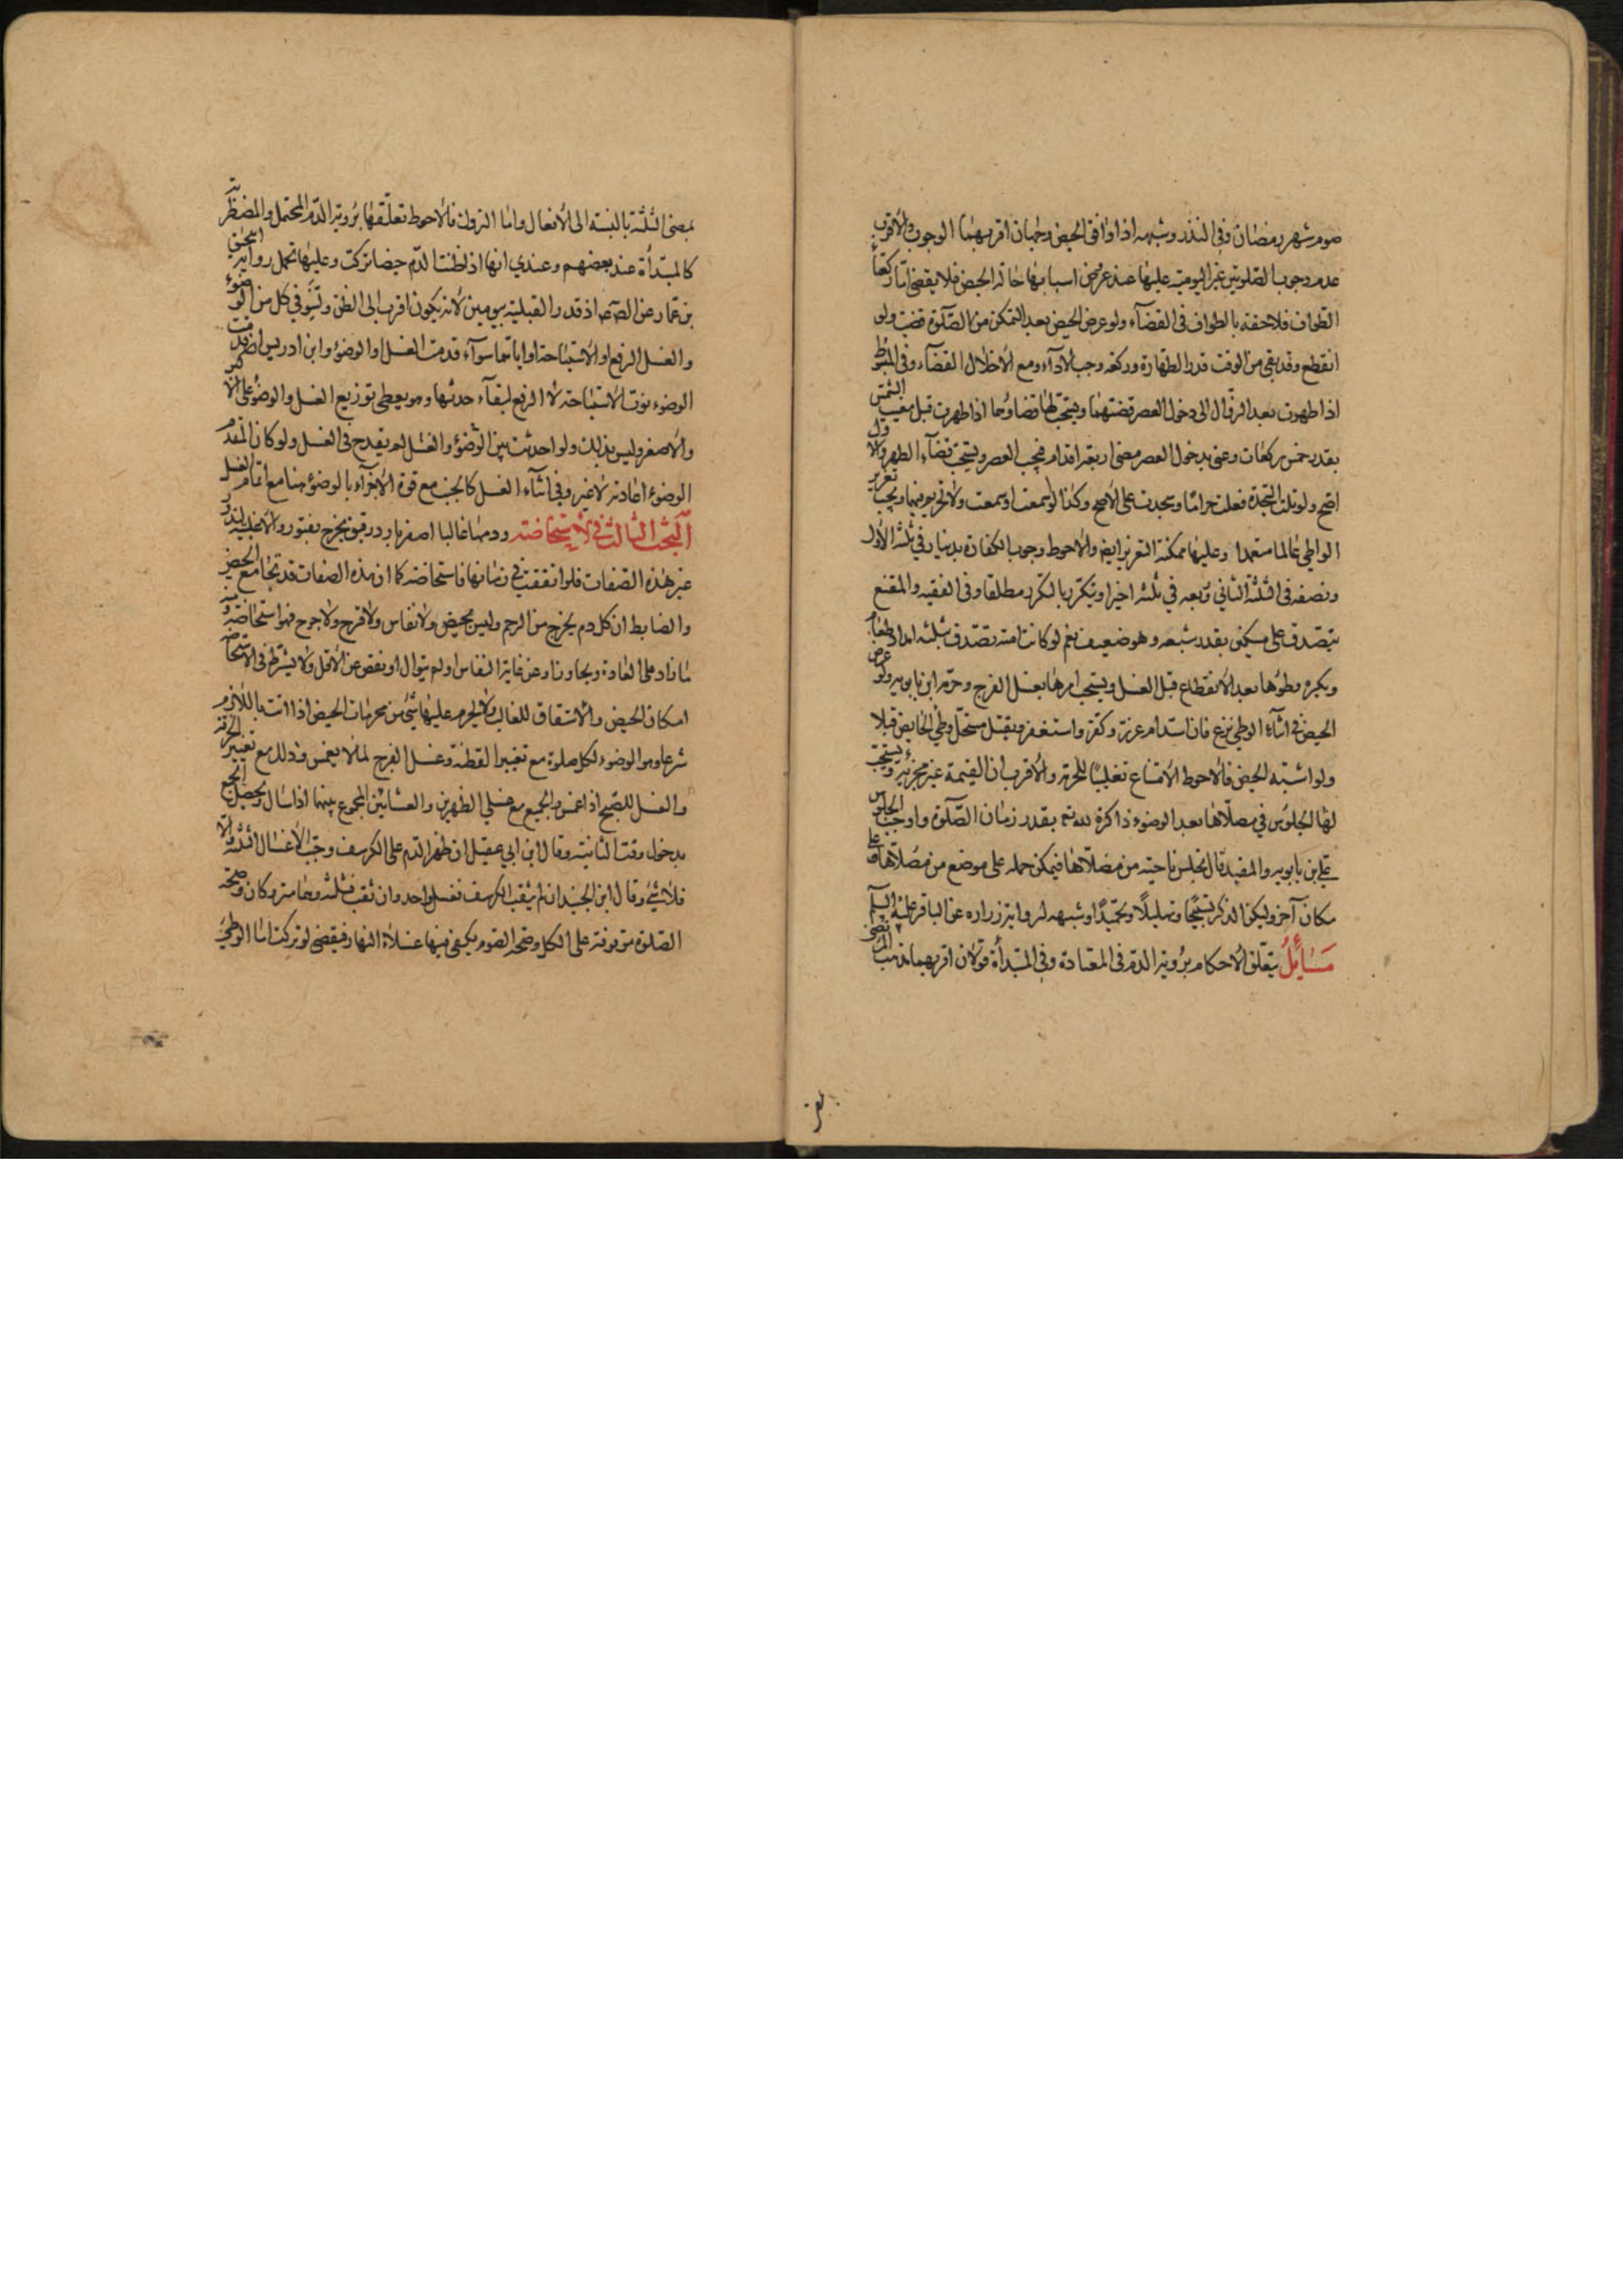 صوم شهر رمضان وفى النذر وشبهه اذا وافق الحيض وجهان اقربهما الوجوب والاقرب
عدم وجوب الصلوتين غير اليومية عليها عند عروض اسبابها حالة الحيض فلا يقضى اما ركعتا
الطواف فلاحقة بالطواف فى القضآء ولو عرض الحيض بعد التمكن من الصّلوة قضت ولو
انقطع وقد بقى من الوقت قدر الطهارة وركعة وجب الادآء ومع الاخلال القضآء وفى المبسوط
اذا طهرت بعد الزوال الى دخول العصر قضتهما ويستحب لها قضاؤهما اذا طهرت قبل مغيب الشمس
بقدر خمس ركعات وعنى بدخول العصر مضى اربعة اقدام فيجب العصر ويستحب قضآء الظهر والاول
اصح ولو تلت السجدة فعلت حراما وسجدت على الاصح وكذا لو سمعت او سمعت ولا تحريم فيهما ويجب تعزير
الواطى عالما متعمدا وعليها ممكنة التعزير ايضا والاحوط وجوب الكفارة بدينار فى ثلثه الاول
ونصفه فى الثلث الثانى وربعه فى ثلثه اخيرا ويتكرر بالتكرر مطلقا وفى الفقيه والمقنع
يتصدق على مسكين بقدر شبعه وهو ضعيف نعم لو كانت امته تصدق بثلثه امداد طعام
ويكره وطؤها بعد الانقطاع قبل الغسل ويستحب امرها بغسل الفرج وحرّمه ابن بابويه ولو عرض
الحيض فى اثنآء الوطى نزع فان استدام عزر وكفر واستغفر ويقتل مستحل وطى الحايض قبلا
ولو اشتبه الحيض فالاحوط الامتناع تغليبا للحرمة والاقرب ان القيمة غير مجزية ويستحب
لها الجلوس فى مصلاها بعد الوضوء ذاكرة لله تعه بقدر زمان الصّلوة واوجب الجلوس
على بن بابويه والمفيد قال تجلس ناحية من مصلاها فيمكن حمله على موضع من مصلاها وعلى
مكان آخر وليكن الذكر تسبيحا وتهليلا وتحميدا وشبهه لرواية زراره عن الباقر عليه السلم
مسائل يتعلق الاحكام برؤية الدم فى المعتادة وفى المبتدأة قولان اقربهما مذهب المرتضى
بمضى الثلثة بالنسبة الى الافعال واما التروك فالاحوط تعلقها برؤية الدم المحتمل والمضطربة
كالمبتدأة عند بعضهم وعندي انها اذا ظنت الدم حيضا تركت وعليها تحمل رواية اسحق
بن عمار عن الصه اذ قدر القبلية بيومين لانه يكون اقرب الى الظن وتنوى في كل من الوضوء
والغسل الرفع او الاستباحة او اياتهما سوآء قدمت الغسل او الوضوء وابن ادريس ان قدمت
الوضوء نوت الاستباحة لا الرفع لبقآء حدثها وهو يعطى توزيع الغسل والوضوء على الاكبر
والاصغر وليس بذلك ولو احدثت بين الوضوء والغسل لم يقدح فى الغسل ولو كان المقدم
الوضوء اعادته لا غير وفى اثنآء الغسل كالجنب مع قوة الاجزآء بالوضوء هنا مع اتمام الغسل
البحث الثالث فى الاستحاضة ودمها غالبا اصفر بارد رقيق يخرج بفتور والاغلبية لندور
غير هذه الصفات فلو اتفقت فى زمانها فاستحاضة كما ان هذه الصفات قد تجامع الحيض
والضابط ان كل دم يخرج من الرحم وليس بحيض ولا نفاس ولا قرح ولا جرح فهو استحاضة ومنه
ما زاد على العادة وتجاوز او عن غاية النفاس او لم يتوال او نقص عن الاقل ولا يشترط فى الاستحاضة
امكان الحيض والاشتقاق للغالب ولا يحرم عليها شئ من محرمات الحيض اذا اتت باللازم
شرعا وهو الوضوء لكل صلوة مع تغيير القطنة وغسل الفرج لما لا يغمس وذلك مع تغيير الخرقة
والغسل للصبح اذا غمس والجميع مع غسلى الظهرين والعشائين المجموع بينهما اذا سال ويحصل الجمع
بدخول وقت الثانية وقال ابن ابى عقيل ان ظهر الدم على الكرسف وجب الاغسال الثلثة والا
فلا شئ وقال ابن الجنيد ان لم يثقب الكرسف فغسل واحد وان ثقب فثلثة ومقامته وكان وصحة
الصلوة موقوفة على الكل وصحة الصوم يكفى فيها غسلا النهار فيقضى لو تركت اما الوطى